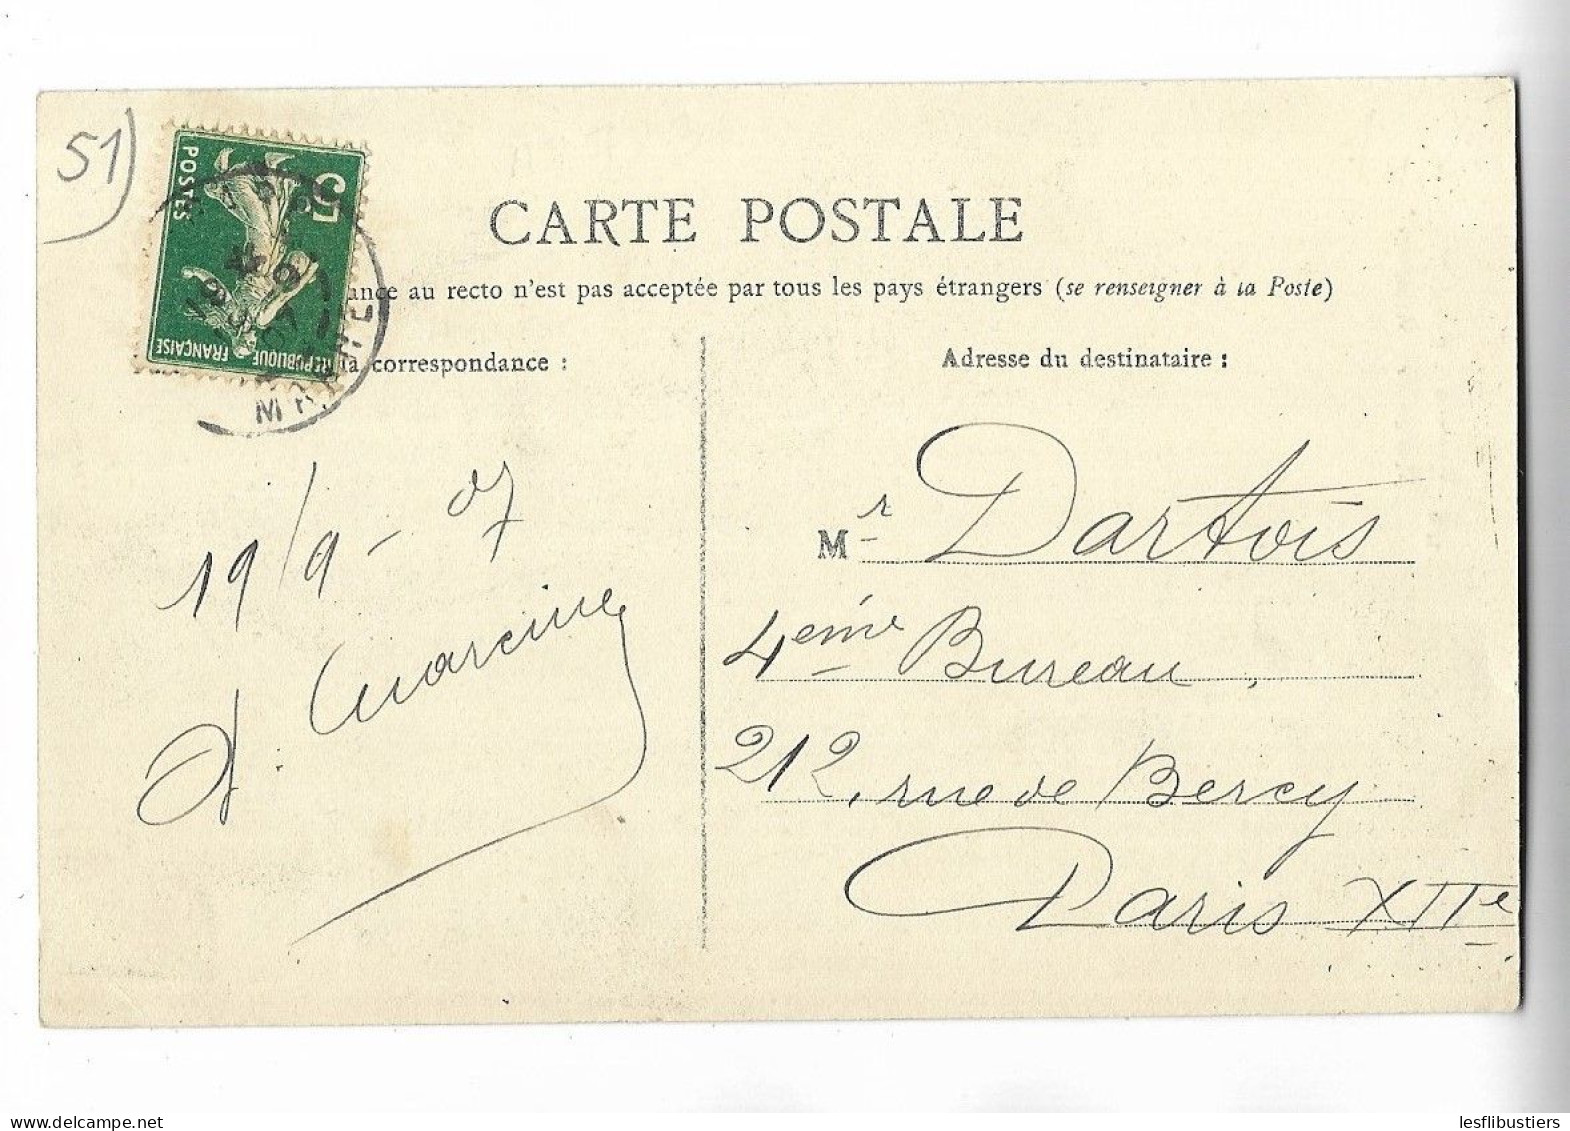 51)
5
POSTES
REPUBLIQUE FRANÇAISE
MARNE
CARTE POSTALE
ance au recto n'est pas acceptée par tous les pays étrangers (se renseigner à la Poste)
la correspondance :
Adresse du destinataire :
19/9 - 07
Mr Dartois
4ème Bureau,
212, rue de Bercy
Paris XIIe
lesflibustiers